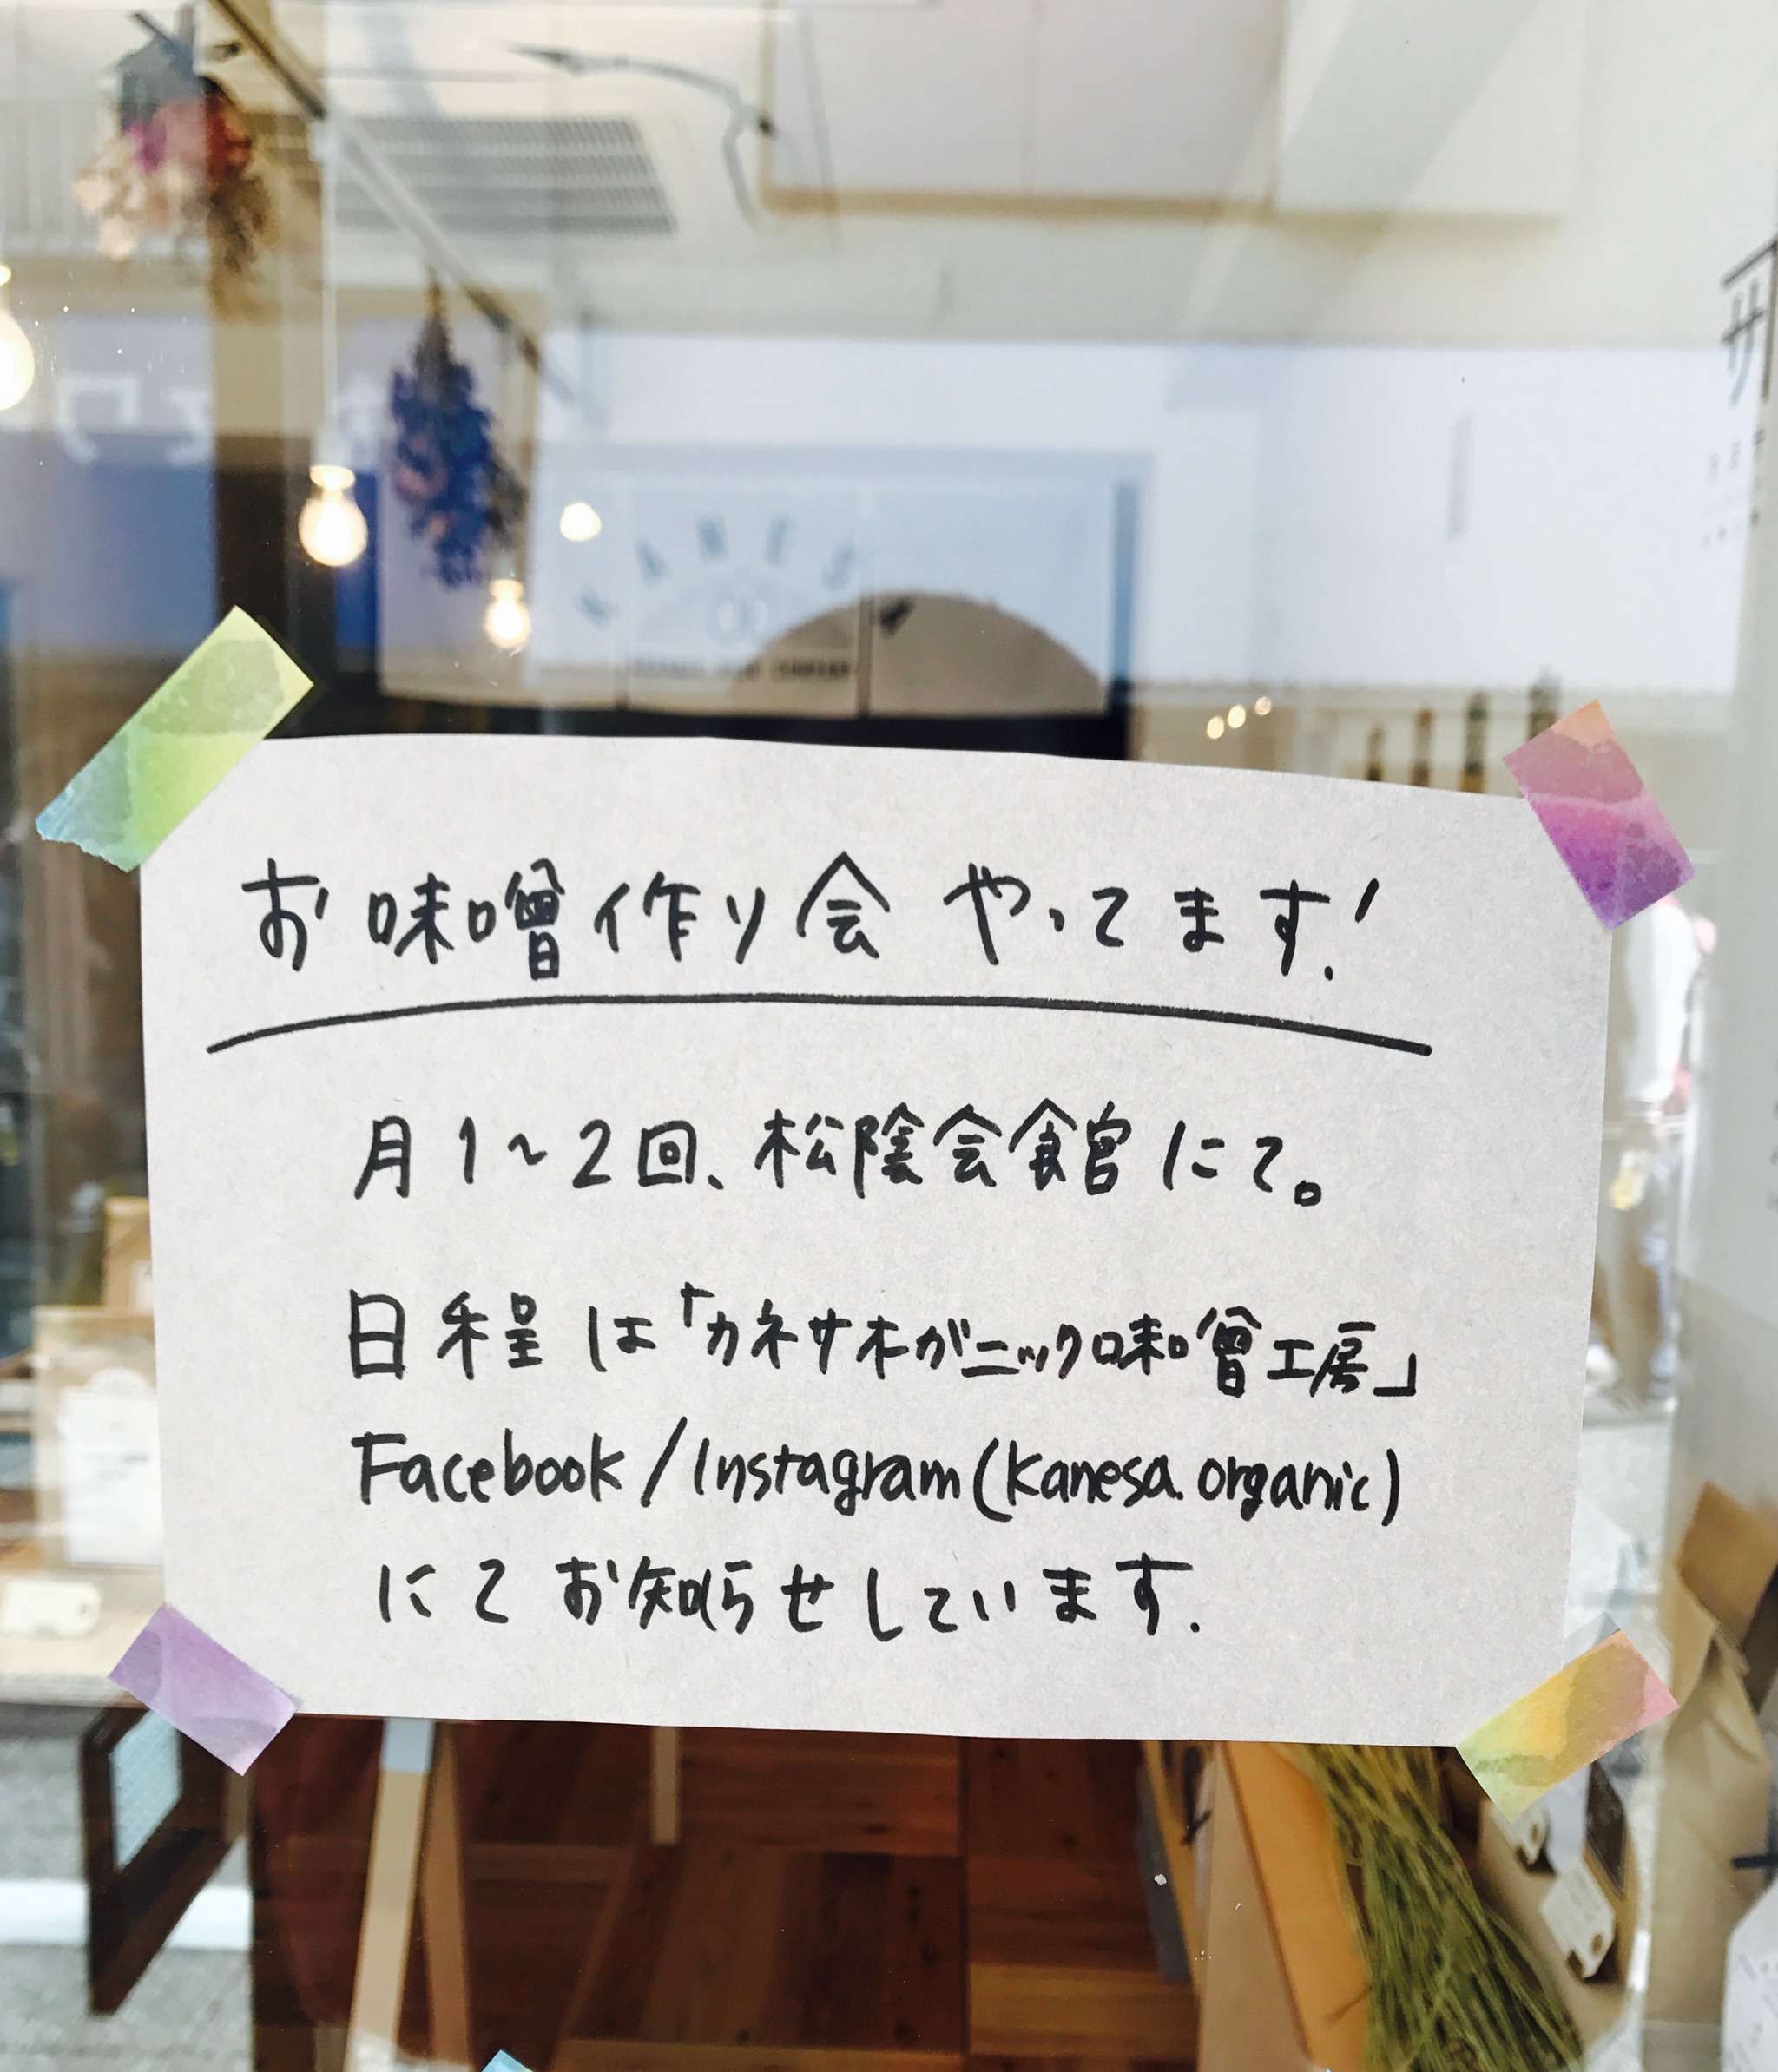 サ
KANES
お味噌作り会 やってます!
月1~2回、松陰会館にて。
日程は「カネサオガニック味噌工房」
Facebook/Instagram(kanesa.organic)
にてお知らせしています.